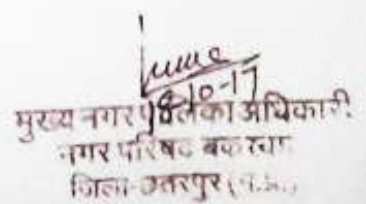 10-17
मुख्य नगर पालिका अधिकारी
नगर परिषद
जिला-छतरपुर (म.प्र.)